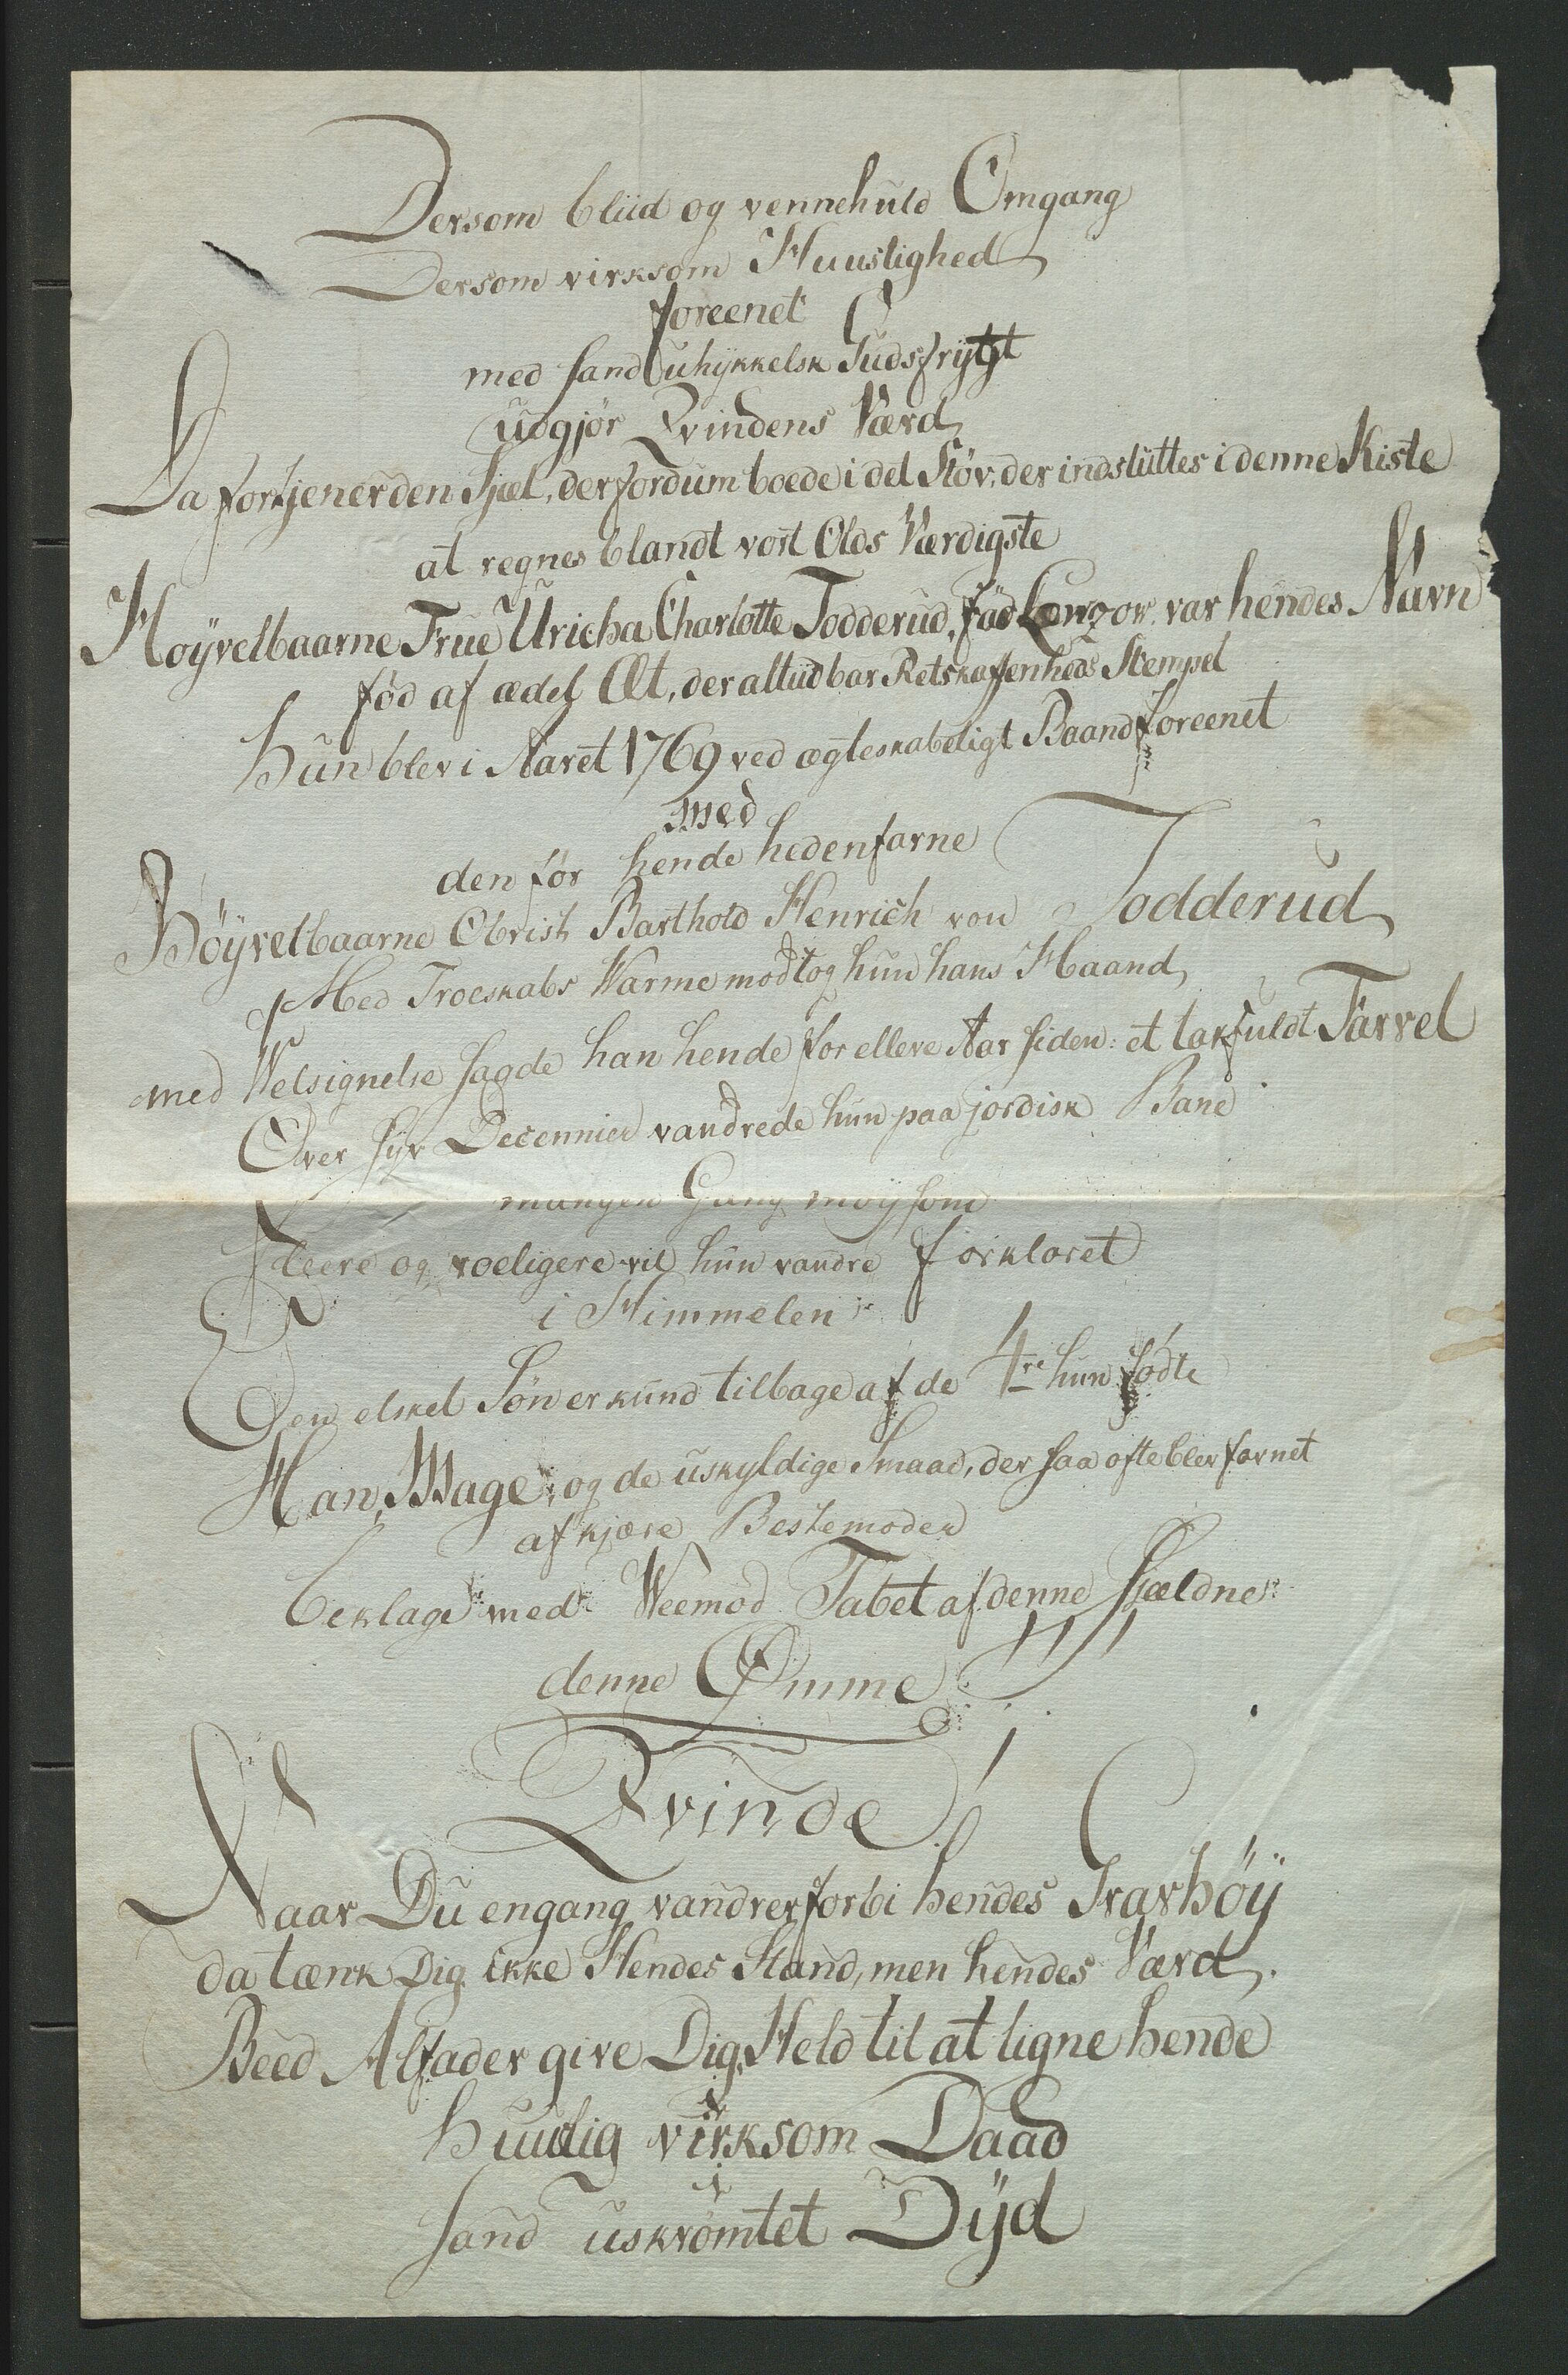 Dersom bliid og vennehuld Omgang
Dersom virksom Huuslighed
foreenet
med sand uhykkelsk Gudsfrygt
udgjør Qvindens Værd
Da fortjener den Sjæl, der fordum boede i det Støv, der indsluttes i denne Kiste
at regnes blandt vort Olds Værdigste
Høÿvelbaarne Frue Ulricha Charlotte Todderud, fød Lowzow, var hendes Navn
fød af ædel Æt, der altiid bar Retskaffenheds Stempel
Hun blev i Aaret 1769 ved ægteskabeligt Baand foreenet
med
den før hende hedenfarne
Høÿvelbaarne Obrist Barthold Henrich von Todderud
Med Troeskabs Varme modtog hun hans Haand,
med Velsignelse sagde han hende for elleve Aar siden: et takfuldt Farvel
Over sÿv Decennier vandrede hun paa jordisk Bane
mangen Gang møÿsom
Fleere og roeligere vil hun vandre forklaret
i Himmelen
Een elsket Søn er kund tilbage af de 4re hun fødte
Han, Mage, og de uskyldige Smaae, der saa ofte blev favnet
af kjære Bestemoder
beklage med Veemod Tabet af denne Sjældne
denne Ømme
Qvinde!
Naar Du engang vandrer forbi hendes Gravhøÿ
da tænk Dig ikke Hendes Stand, men hendes Værd.
Beed Alfader give Dig Held til at ligne hende
i
huuslig virksom Daad
i
sand uskrømtet Dÿd